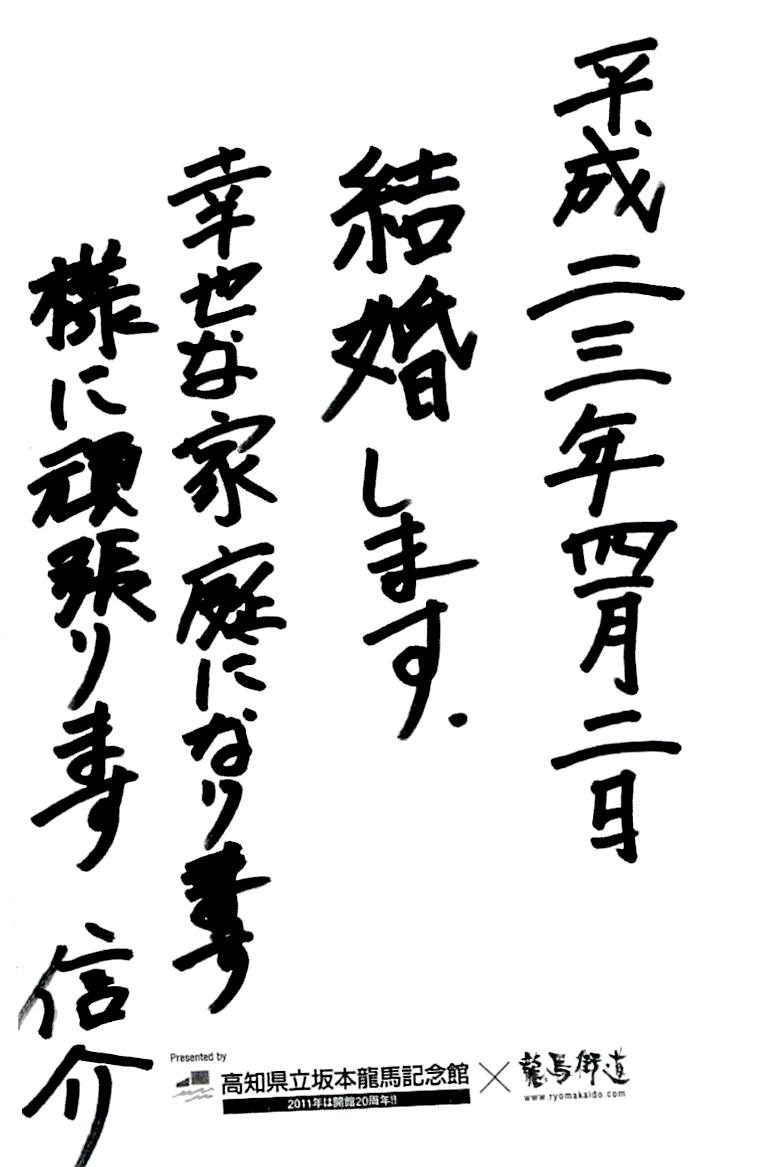 平成二三年四月二日
結婚します.
幸せな家庭になります
様に頑張ります 信介
Presented by
高知県立坂本龍馬記念館
2011年は開館20周年!!
×
龍馬街道
www.ryomakaido.com